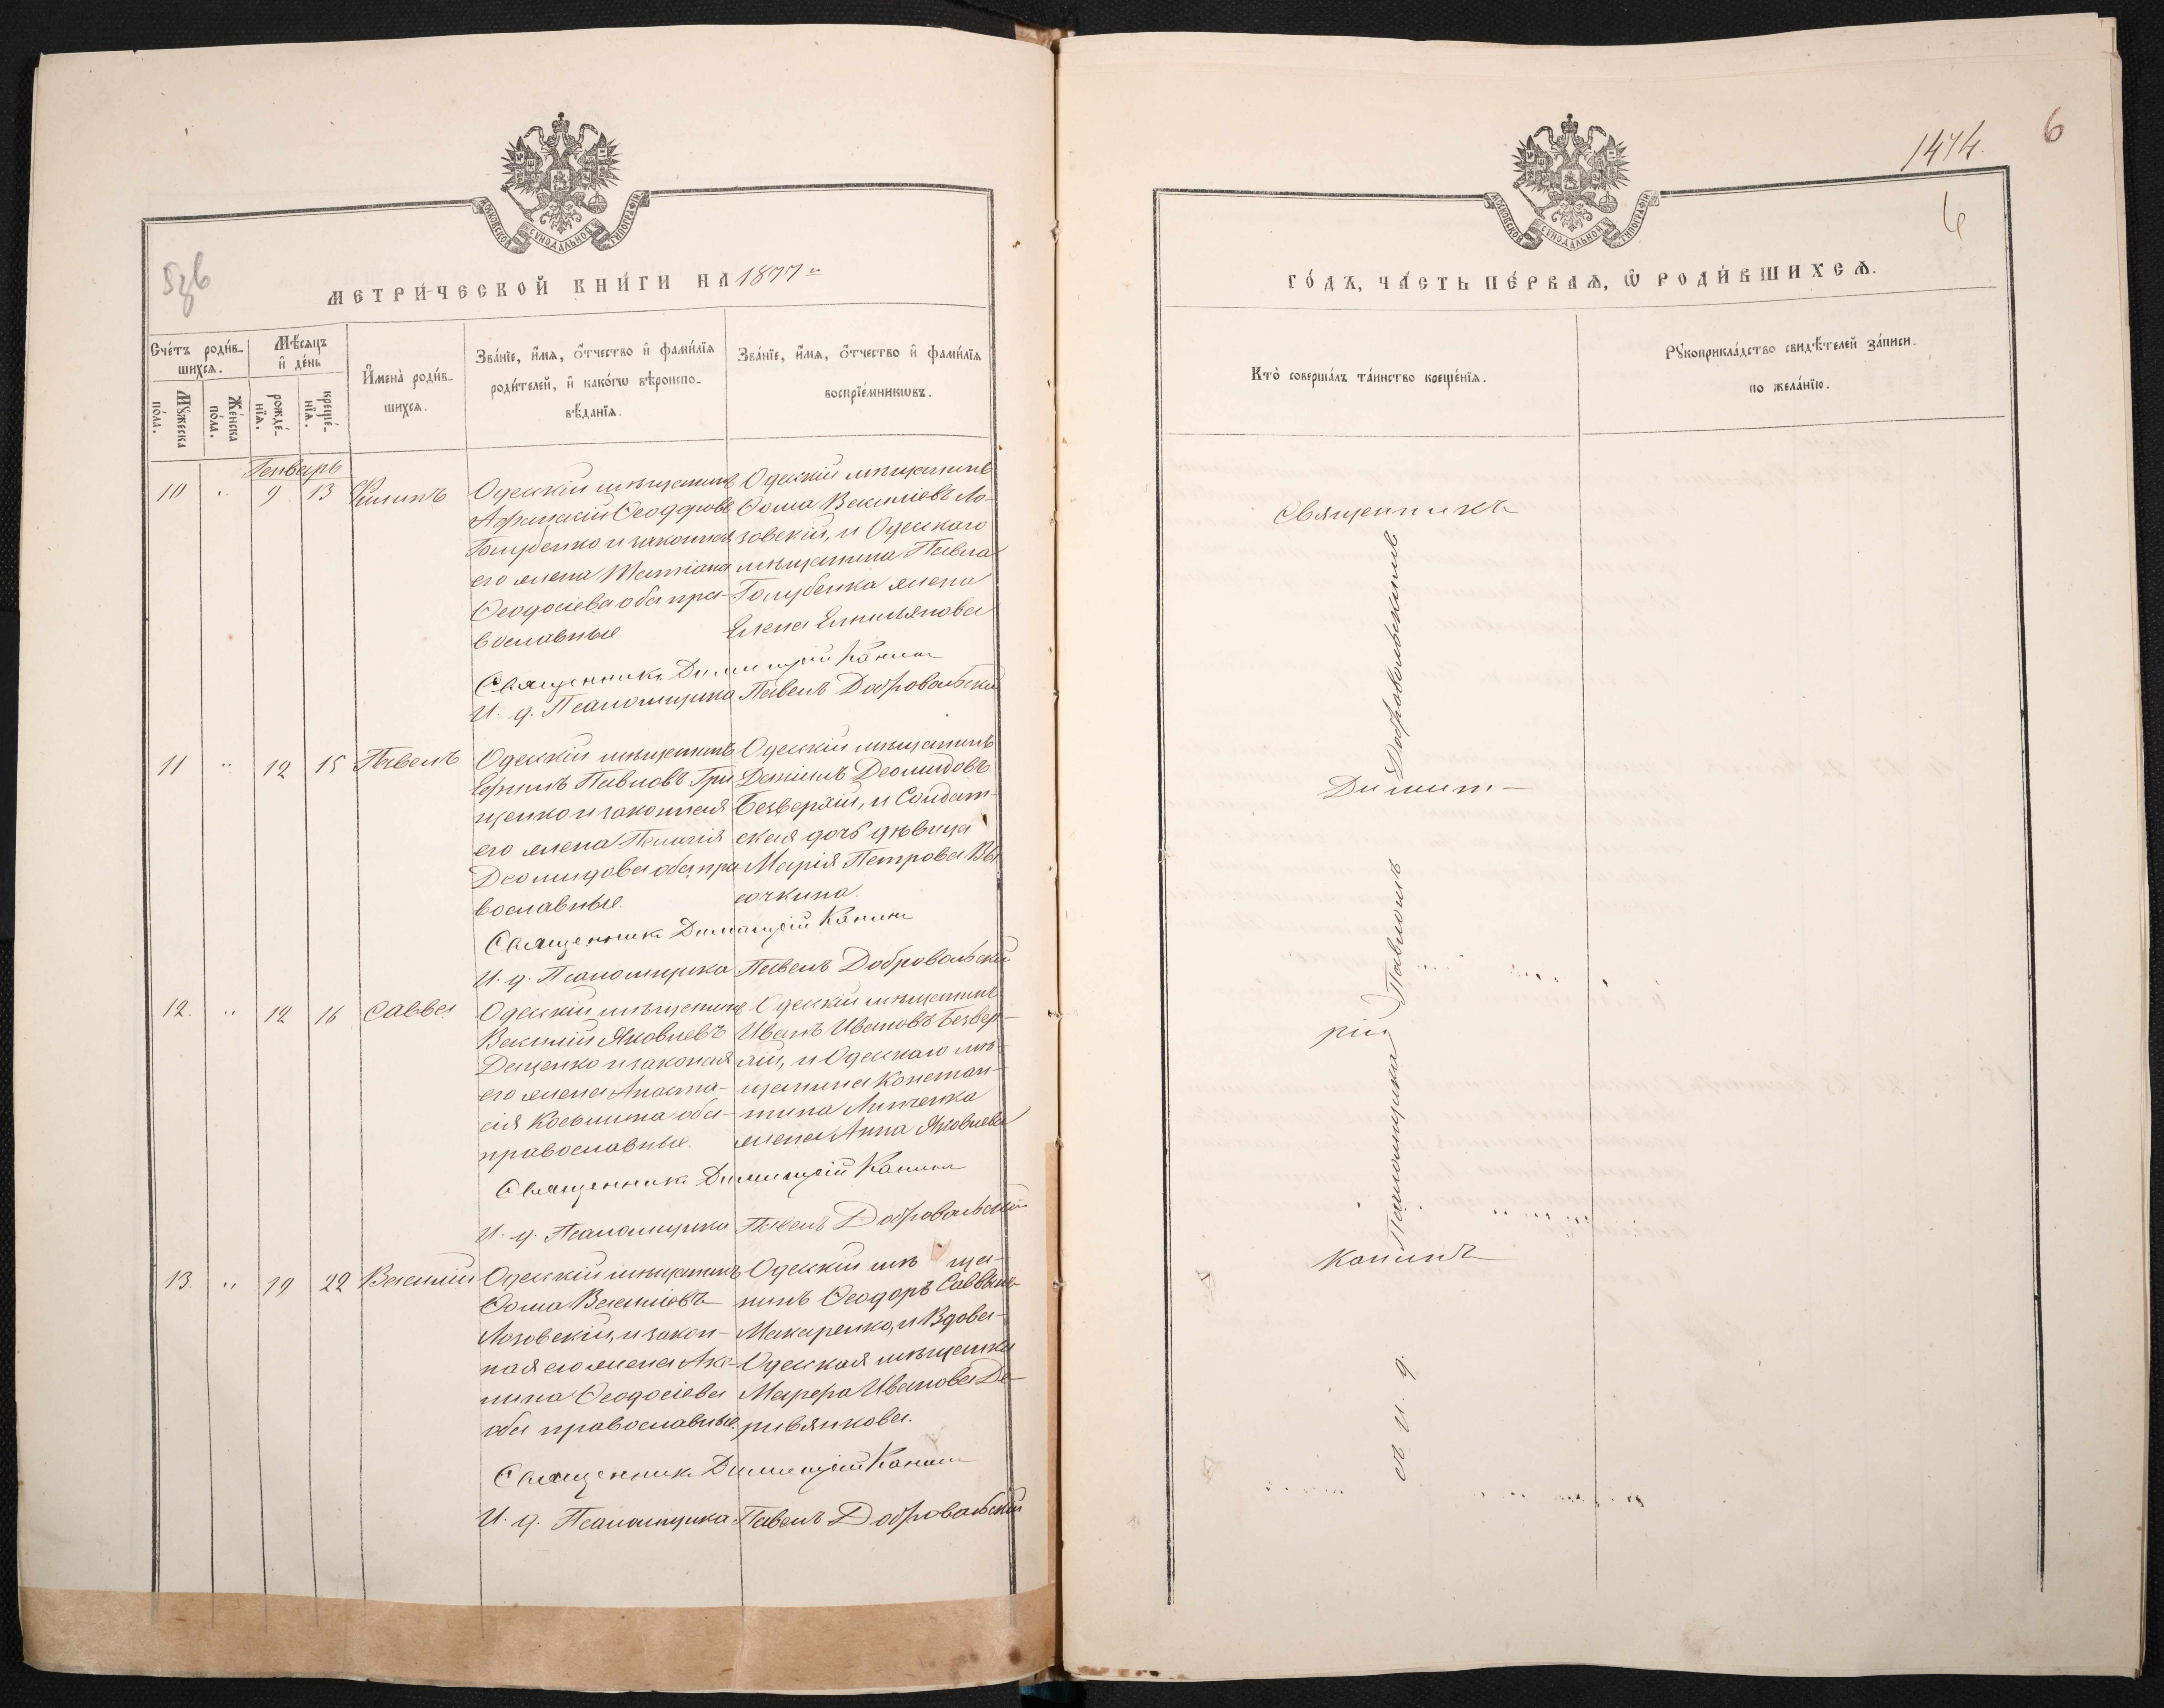 МОСКОВСКОЙ СѴНОДАЛЬНОЙ ТИПОГРАФІИ
МЕТРИ́ЧЕСКОЙ КНИ́ГИ НА 1877
Сче́тъ роди́в-
шихсѧ.
Мѣ́сѧцъ
и҆ де́нь
Мꙋ́жеска
по́ла.
Же́нска
по́ла.
рожде́-
нїѧ.
креще́-
нїѧ.
И҆мена̀ роди́в-
шихсѧ.
Зва́нїе, и҆́мѧ, ѻ҆́тчество и҆ фами́лїѧ
роди́телей, и҆ како́гѡ вѣроиспо-
вѣ́данїѧ.
Зва́нїе, и҆́мѧ, ѻ҆́тчество и҆ фами́лїѧ
воспрїе́мникѡвъ.
Генварь
10 " 9 13 Филипъ
Одесскій мѣщанинъ
Ѳеодоровъ
Голубенко и законная
его жена Татіана
Ѳеодосіева оба пра-
вославные.
Одесскій мѣщанинъ
Ѳома Василіевъ Ло-
зовскій, и Одесскаго
мѣщанина Павла
Голубенка жена
Елена Емильянова
Священникъ Димитрій Канинъ
И. д. Псаломщика Павелъ Добровольскій
11 " 12 15 Павелъ
Одесскій мѣщанинъ
Ефимъ Павловъ Гри
щенко и законная
его жена Пелагія
Деомидова оба пра
вославные.
Одесскій мѣщанинъ
Даніилъ Деомидовъ
Безверхій, и Солдат-
ская дочь дѣвица
Марія Петрова Вы
сочкина.
Священникъ Димитрій Канинъ
И. д. Псаломщика Павелъ Добровольскій
12. " 12 16 Савва
Одесскій мѣщанинъ
Василій Яковлевъ
Даценко и законая
его жена Анаста-
сія Косьмина оба
православные.
Одесскій мѣщанинъ
Иванъ Ивановъ Безвер-
хій, и Одесскаго мѣ-
щанина Констан-
тина Линченка
жена Анна Яковлева
Священникъ Димитрій Канинъ
И. д. Псаломщика Павелъ Добровольскій
13. " 19 22 Василій
Одесскій мѣщанинъ
Ѳома Василіевъ
Лозовскій, и закон-
ная его жена Аке-
нина Ѳеодосіева
оба православные.
Одесскій мѣ ща-
нинъ Ѳеодоръ Саввинъ
Макаренко, и Вдова
Одесская мѣщанка
Марѳа Иванова Де-
ривянкова.
Священникъ Димитрій Канинъ
И. д. Псаломщика Павелъ Добровольскій
1474.
6
6
МОСКОВСКОЙ СѴНОДАЛЬНОЙ ТИПОГРАФІИ
ГО́ДЪ, ЧА́СТЬ ПЕ́РВАѦ, Ѡ҆ РОДИ́ВШИХСѦ.
Кто̀ соверша́лъ та́инство креще́нїѧ.
Рꙋкоприкла́дство свидѣ́телей за́писи
по жела́нїю.
Священникъ
Димит-
рій
Канинъ
съ и. д. Псаломщика Павломъ Добровольскимъ